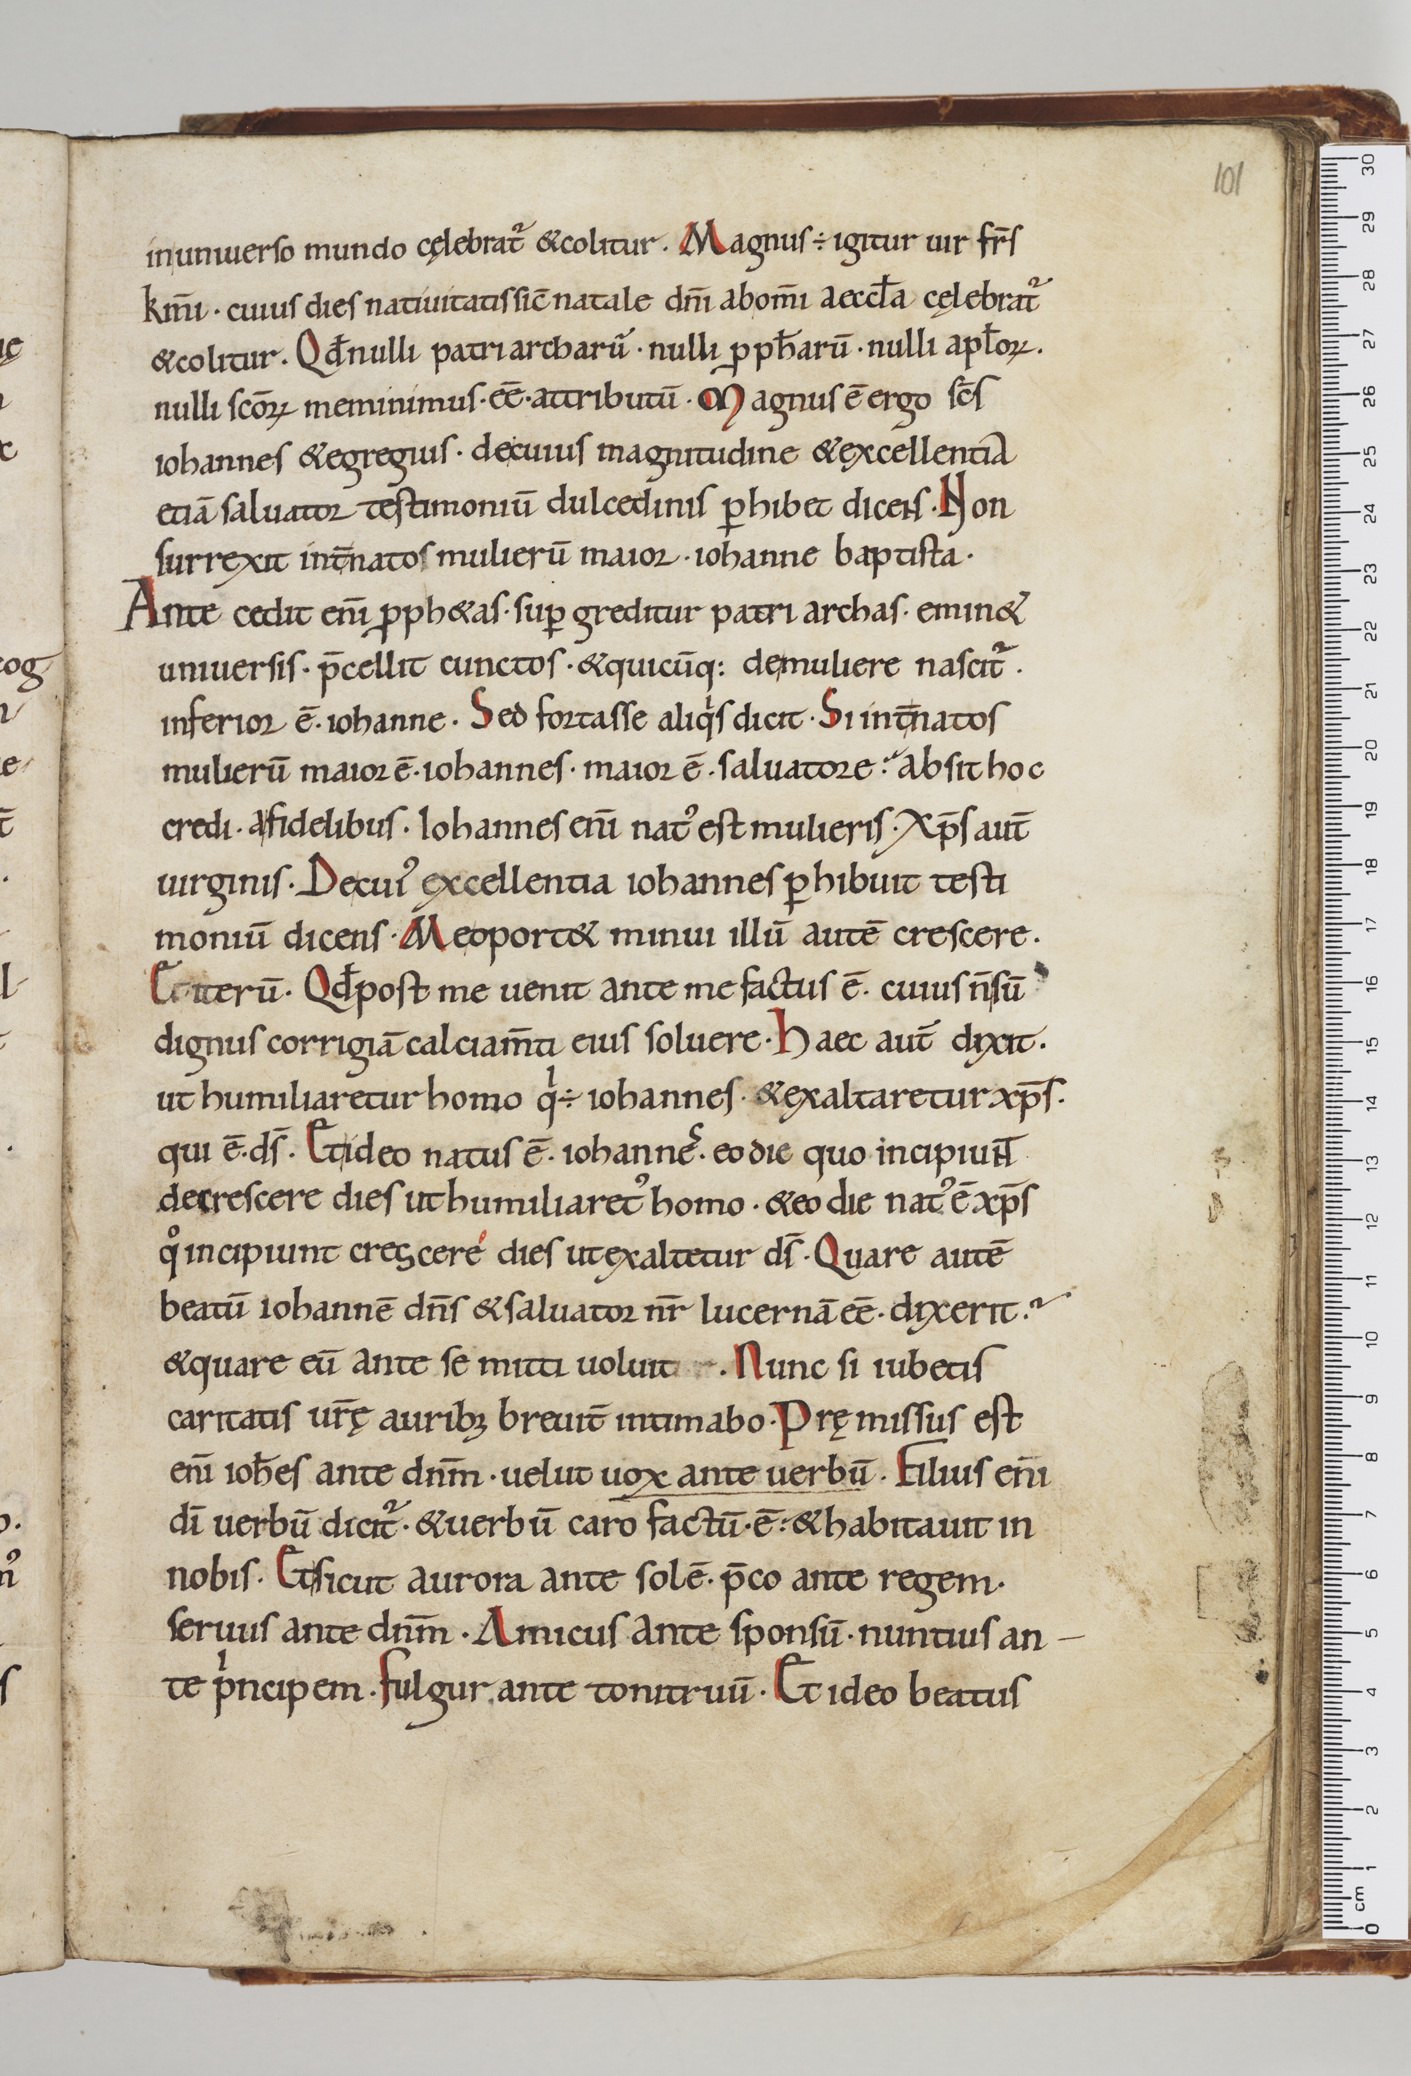 101
inuniuerso mundo cęlebrat᷑ &colitur. Magnus ÷ igitur uir fr̄s
km̄i · cuius dies natiuitatis sic̄ natale dn̄i abom̄i aeccl̄a cęlebrat᷑
&colitur. Qđnulli patriarcharū · nulli ꝓph̄arū · nulli apl̄oꝝ.
nulli sc̄oꝝ meminimus · eē · attributū · Magnus ē ergo sc̄s
iohannes &egregius · decuius magnitudine &excellentia
etiā saluator testimoniū dulcedinis ꝑhibet dicens · Non
surrexit int̄natos mulierū maior · iohanne baptista ·
Ante cedit eni̅ ꝓph&as · suꝑ greditur patriarchas · emin&
uniuersis · p̄cellit cunctos · &quicūq: demuliere nascit᷑ .
inferior ē · iohanne · Sed fortasse aliqͥs dicit · Si int̄natos
mulierū maior ē · iohannes · maior ē · saluatore ? absit hoc
credi · afidelibus · Iohannes eni̅ natꝰ est mulieris · Xp̄s aut̄
uirginis · Decuiꝰ excellentia iohannes ꝑhibuit testi
moniū dicens · Meoport& minui illū autē crescere .
Et iterū · Qđpost me uenit ante me factus ē · cuius n̄sū
dignus corrigiā calciam̄ti eius soluere · Haec aut̄ dixit .
ut humiliaretur homo qͥ ÷ iohannes · &exaltaretur xp̄s .
qui ē · ds̄ · Etideo natus ē · iohannes · eo die quo incipiunt
decrescere dies ut humiliaretꝰ homo · &eo die natꝰ ē xp̄s
qͦ incipiunt crescere dies utexaltetur ds̄ · Quare autē
beatū iohannē dn̄s &saluator nr̄ lucernā eē · dixerit ?
&quare eū ante se mitti uoluit . Nunc si iubetis
caritatis ur̄ę auribꝫ breuit̄ intimabo · Pręmissus est
eni̅ ioh̄es ante dn̄m · uelut uox ante uerbū . Filius eni̅
di̅ uerbū dicit᷑ · &uerbū caro factū · ē : &habitauit in
nobis · Etsicut aurora ante solē · p̄co ante regem ·
seruus ante dn̄m · Amicus ante sponsū · nuntius an –
te pͥncipem · fulgur ante tonitruū · Et ideo beatus
30
29
28
27
26
25
24
23
22
21
20
19
18
17
16
15
14
13
12
11
10
9
8
7
6
5
4
3
2
1
cm
0